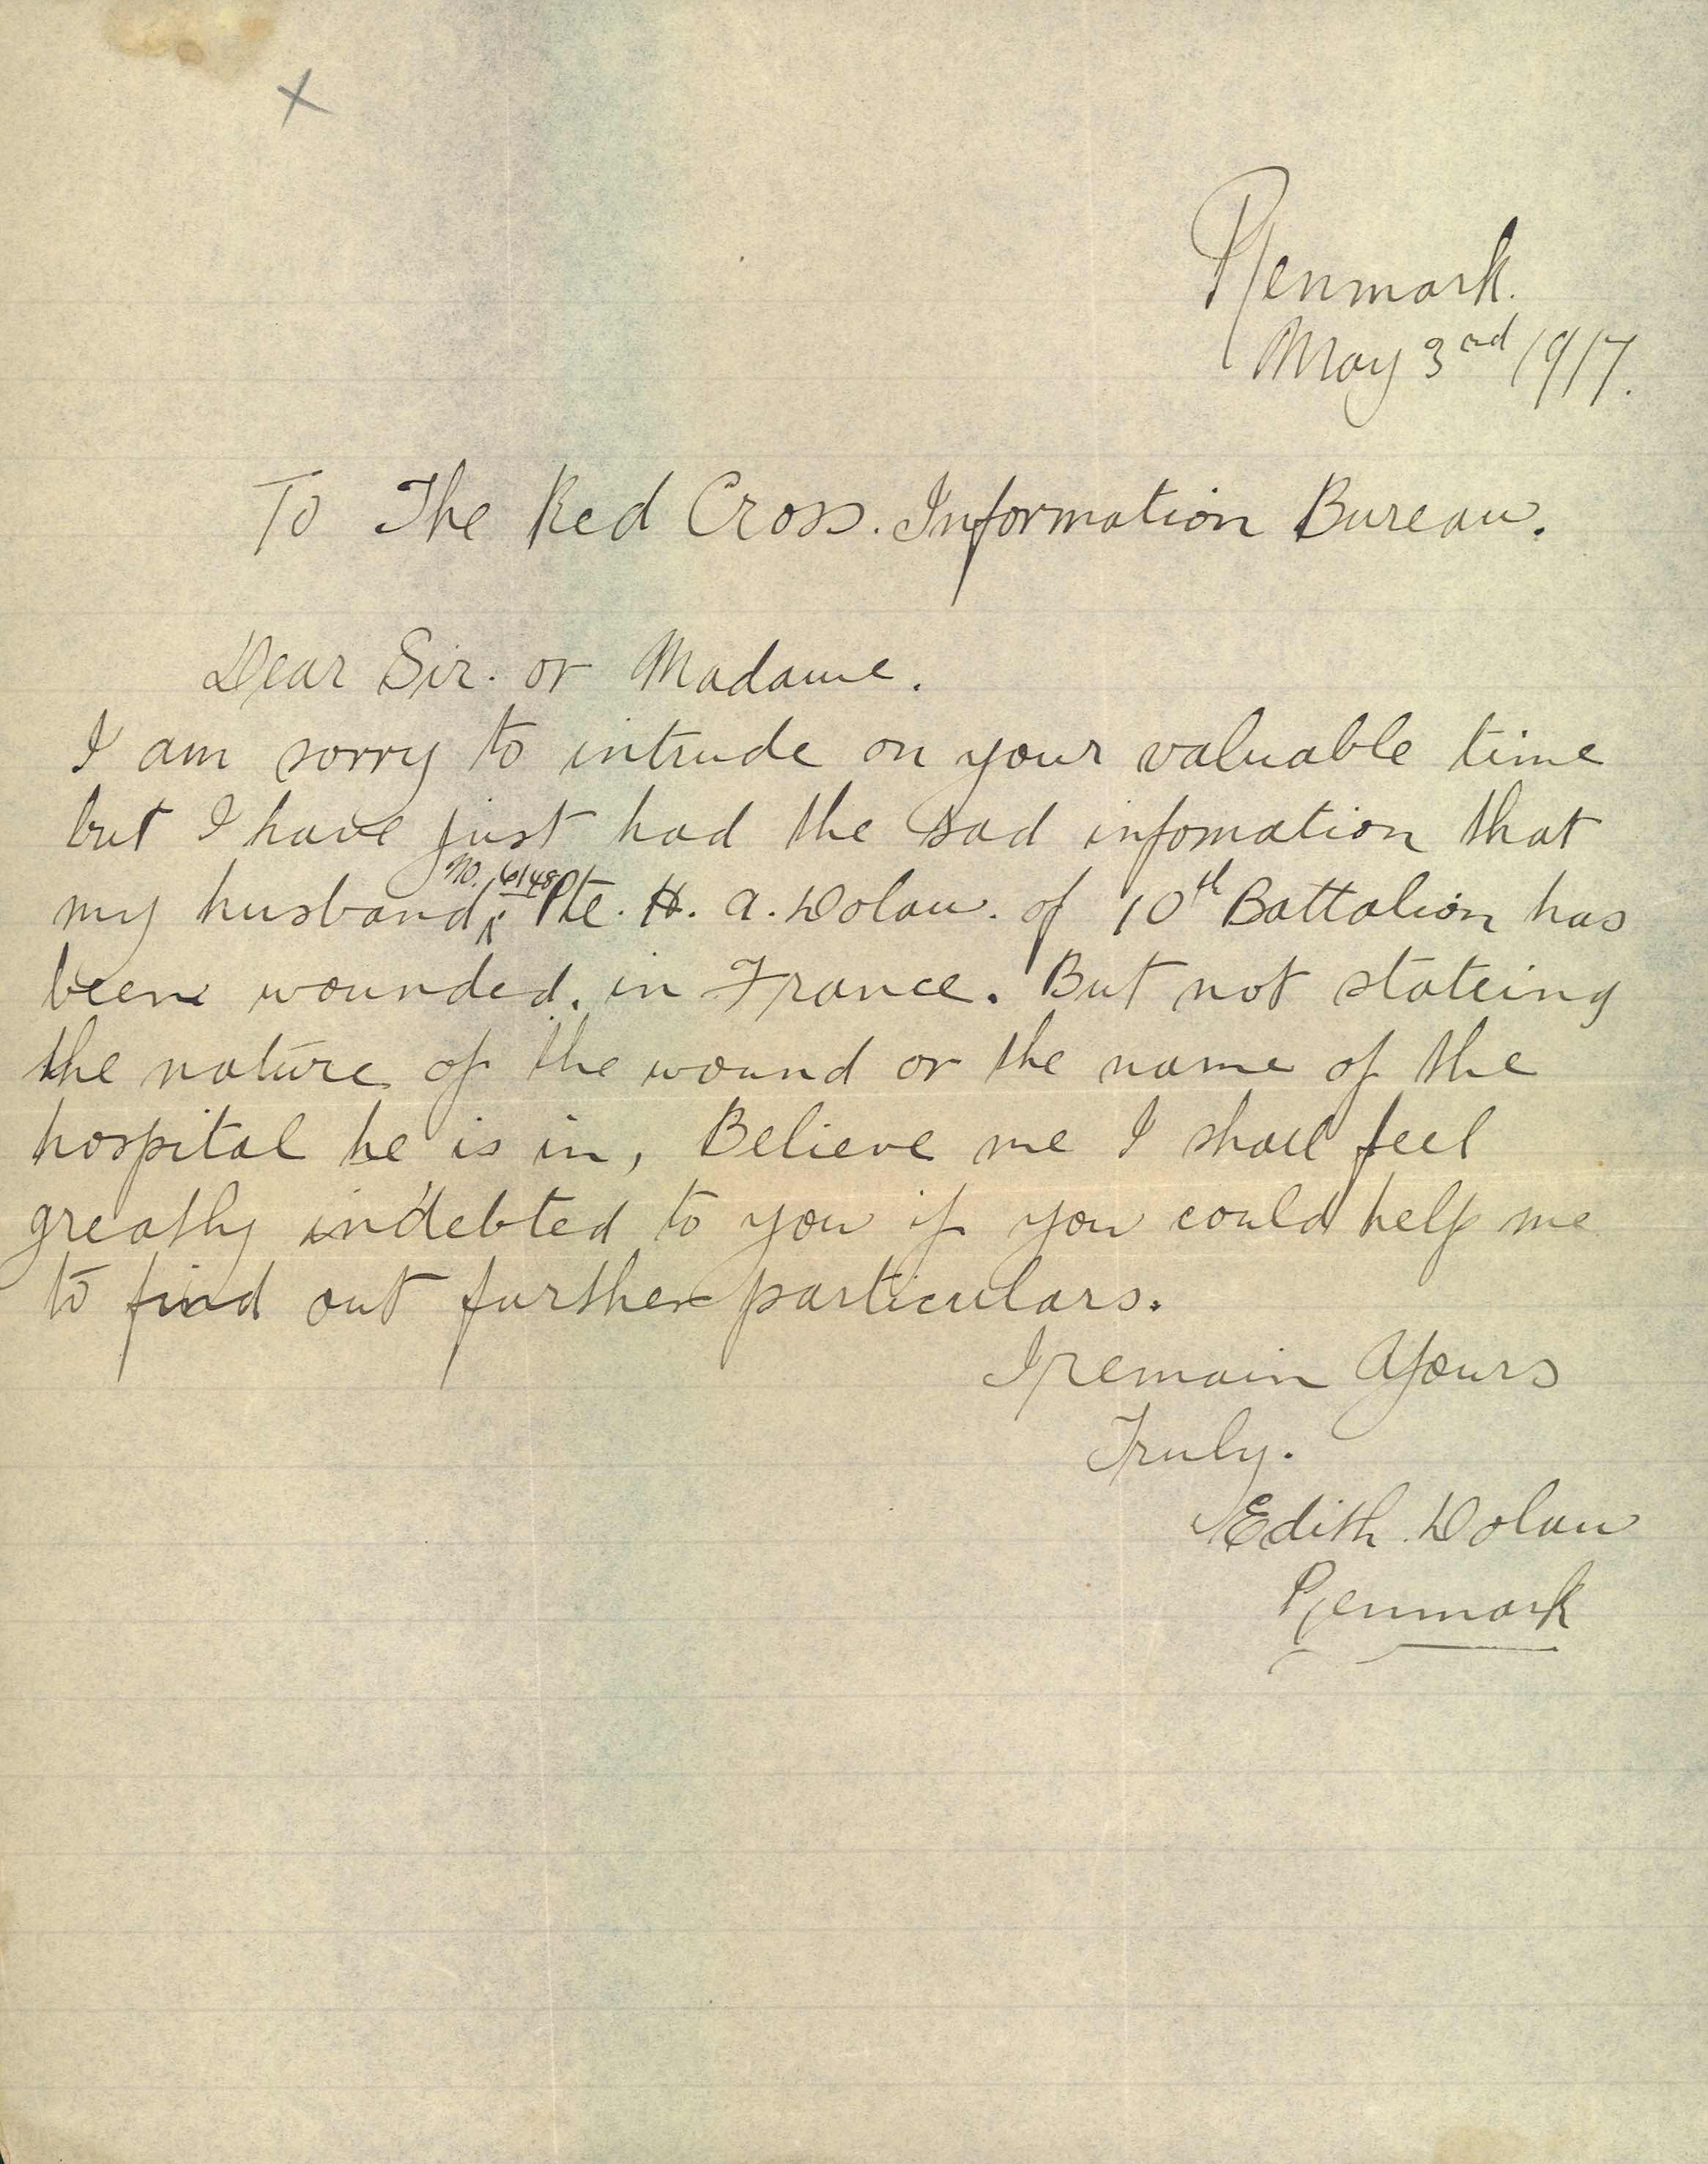 Renmark.
May 3rd 1917.
To The Red Cross. Information Bureau.
Dear Sir. or Madame.
I am sorry to intrude on your valuable time
but I have just had the sad infomation that
my husband, No. 6148 Pte. H. A. Dolan. of 10th Battalion has
been wounded. in France. But not stateing
the nature of the wound or the name of the
hospital he is in, Believe me I shall feel
greatly indebted to you if you could help me
to find out further particulars.
I remain Yours
Truly.
Edith Dolan
Renmark